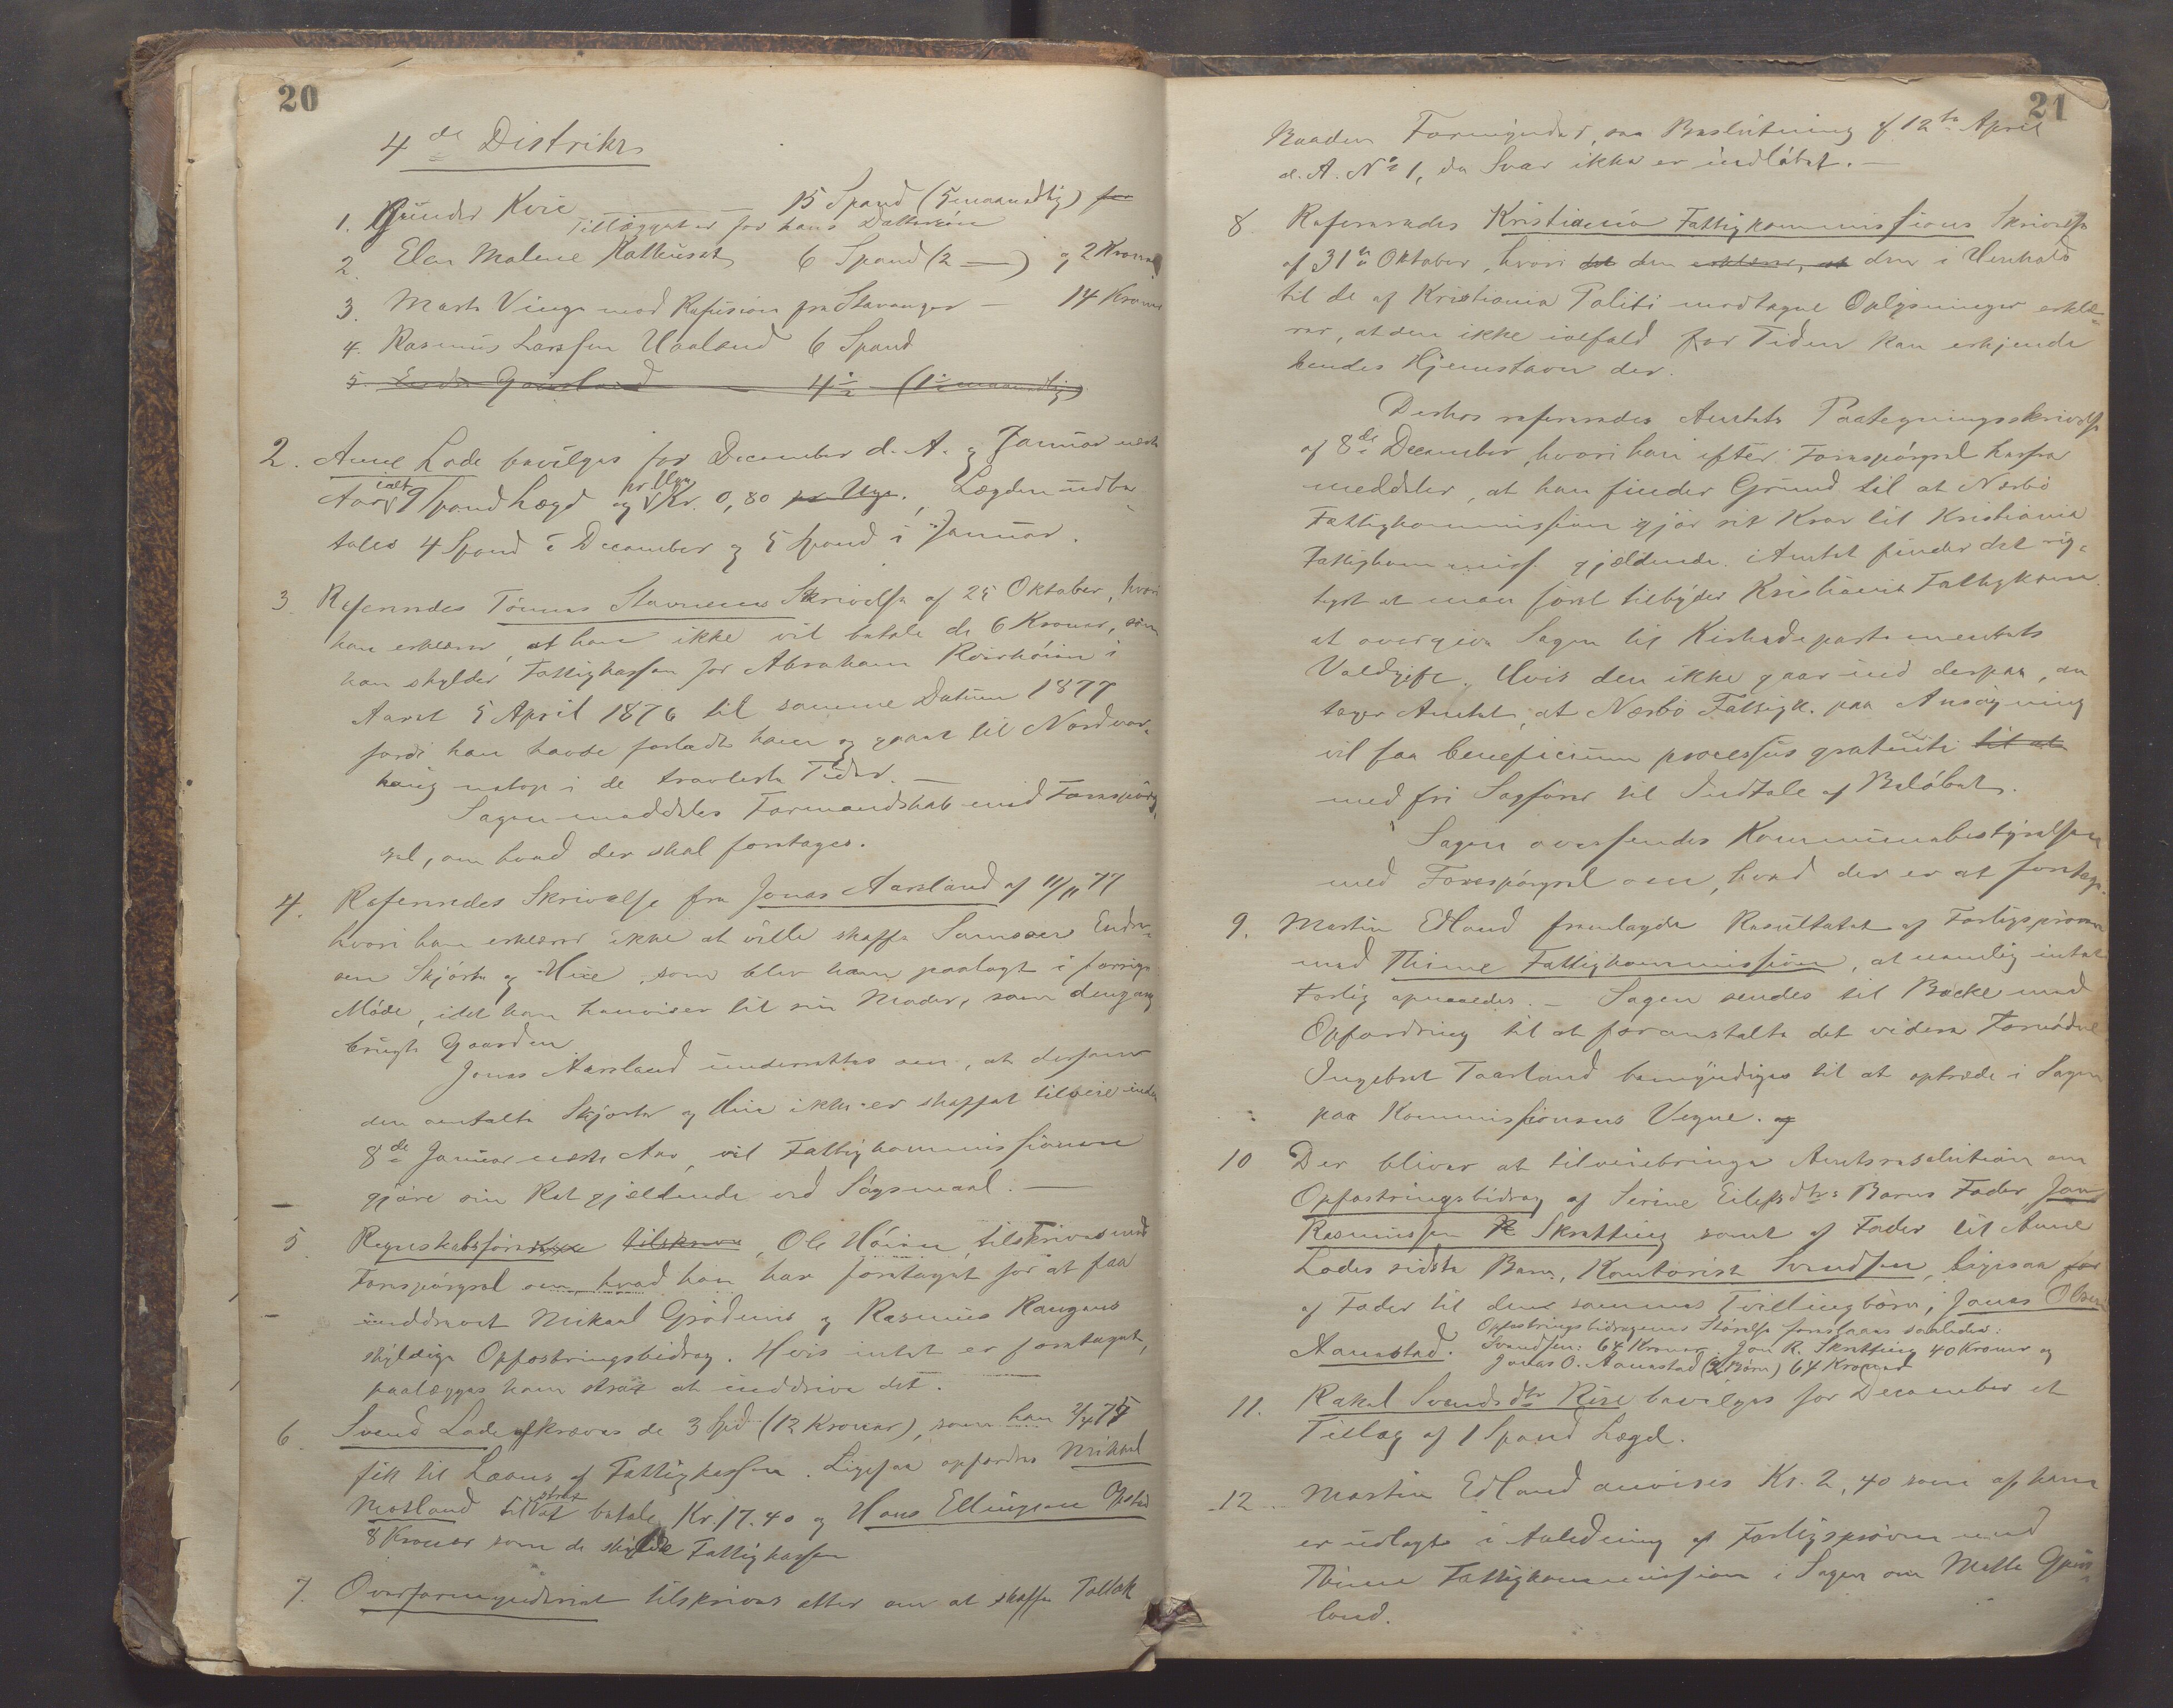 20
4de Distrikt
1. Gunder Kvie 15 Spand (5 maanedlig) for
Tillægget er for hans Dattersøn
2. Elen Malene Kalhuset 6 Spand (2 —) og 2 Kroner
3. Marta Vinge mod Refusion fra Stavanger — 14 Kroner
4. Rasmus Larssen Haaland 6 Spand
5. Endre Gausland 4½ (1½ maanedlig)
2. Anne Lode bevilges for December d. A. og Januar næste
Aar ialt 9 Spand Lægd og pr Uge Kr. 0,80 pr Uge. Lægden udbe-
tales 4 Spand i December og 5 Spand i Januar.
3. Refereredes Tønnes Stavnems Skrivelse af 25 Oktober, hvori
han erklærer, at han ikke vil betale de 6 Kroner, som
han skylder Fattigkassen for Abraham Kvirhoien i
Aaret 5 April 1876 til samme Datum 1877
fordi han havde forladt ham og gaaet til Nordvar-
haug netop i de travleste Tider. —
Sagen meddeles Formandskab med Forespørg-
sel, om hvad der skal foretages.
4. Refereredes Skrivelse fra Jonas Aarsland af 11/11 77
hvori han erklærer ikke at ville skaffe Samson Endre-
sen Skjorte og Hue, som blev ham paalagt i forrige
Møde, idet han henviser til sin Moder, som dengang
brugte Gaarden.
Jonas Aarsland underrettes om, at dersom
den omtalte Skjorte og Hue ikke er skaffet tilveie inden
8de Januar næste Aar, vil Fattigkommissionen
gjøre sin Ret gjældende ved Søgsmaal. —
5. Regnskabsfører tilskrives Ole Høien, tilskrives med
Forespørgsel om, hvad han har foretaget for at faa
inddrevet Mikael Grødems og Rasmus Rangens
skyldige Opfostringsbidrag. Hvis intet er foretaget,
paalægges ham strax at inddrive det. —
6. Svend Lode afkræves de 3 Spd (12 Kroner), som han 2/4 75
fik til Laans af Fattigkassen. Ligesaa opfordres Mikael
Motland til strax at betale Kr. 17.40 og Hans Ellingsen Opstad
8 Kroner som de skylde Fattigkassen
7. Overformynderiet tilskrives atter om at skaffe Tollak
21
Baaden Formynder, saa Beslutning af 12te April
d. A. No 1, da Svar ikke er indløbet. —
8. Refereredes Kristiania Fattigkommissions Skrivelse
af 31te Oktober, hvori det den erklærer, at den i Henhold
til de af Kristiania Politi modtagne Oplysninger erklæ-
rer, at den ikke ialfald for Tiden kan erkjende
hendes Hjemstavn der.
Derhos refereredes Amtets Paategningsskrivelse
af 8de December, hvori han efter Forespørgsel herfra
meddeler, at han finder Grund til at Nærbø
Fattigkommission gjør sit Krav til Kristiania
Fattigkommiss. gjældende. Amtet finder det rig-
tigst at man først tilbyder Kristiania Fattigkom.
at overgive Sagen til Kirkedepartementets
Voldgift. Hvis den ikke gaar ind derpaa, an-
tager Amtet, at Nærbø Fattigk. paa Ansøgning
vil faa beneficium processus gratuiti til at
med fri Sagfører til Indtale af Beløbet.
Sagen oversendes Kommunebestyrelsen
med Forespørgsel om, hvad der er at foretage.
9. Martin Edland fremlagde Resultatet af Forligsprøven
med Thime Fattigkommission, at nemlig intet
Forlig opnaaedes. — Sagen sendes til Bocke med
Opfordring til at foranstalte det videre Fornødne
Ingebret Taarland bemyndiges til at optræde i Sagen
paa Kommissionens Vegne. og
10 Der bliver at tilveiebringe Amtsresolution om
Opfostringsbidrag af Serine Eilefsdtrs Barns Fader Jon
Rasmussen R Skratting samt af Fader til Anne
Lodes sidste Barn, Kontorist Svendsen, ligesaa for
af Fader til den sammes Tvillingbørn, Jonas Olsen
Aanestad. Opfostringsbidragenes Størrelse foreslaaes saaledes:
Svendsen: 64 Kroner Jon R. Skratting 40 Kroner og
Jonas O. Aanestad (2 Børn) 64 Kroner
11. Rakel Svendsdtr Rise bevilges for December et
Tillæg af 1 Spand Lægd.
12. Martin Edland anvises Kr. 2,40 som af ham
er udlagte i Anledning af Forligsprøven med
Thime Fattigkommission i Sagen om Mette Gaus-
land.